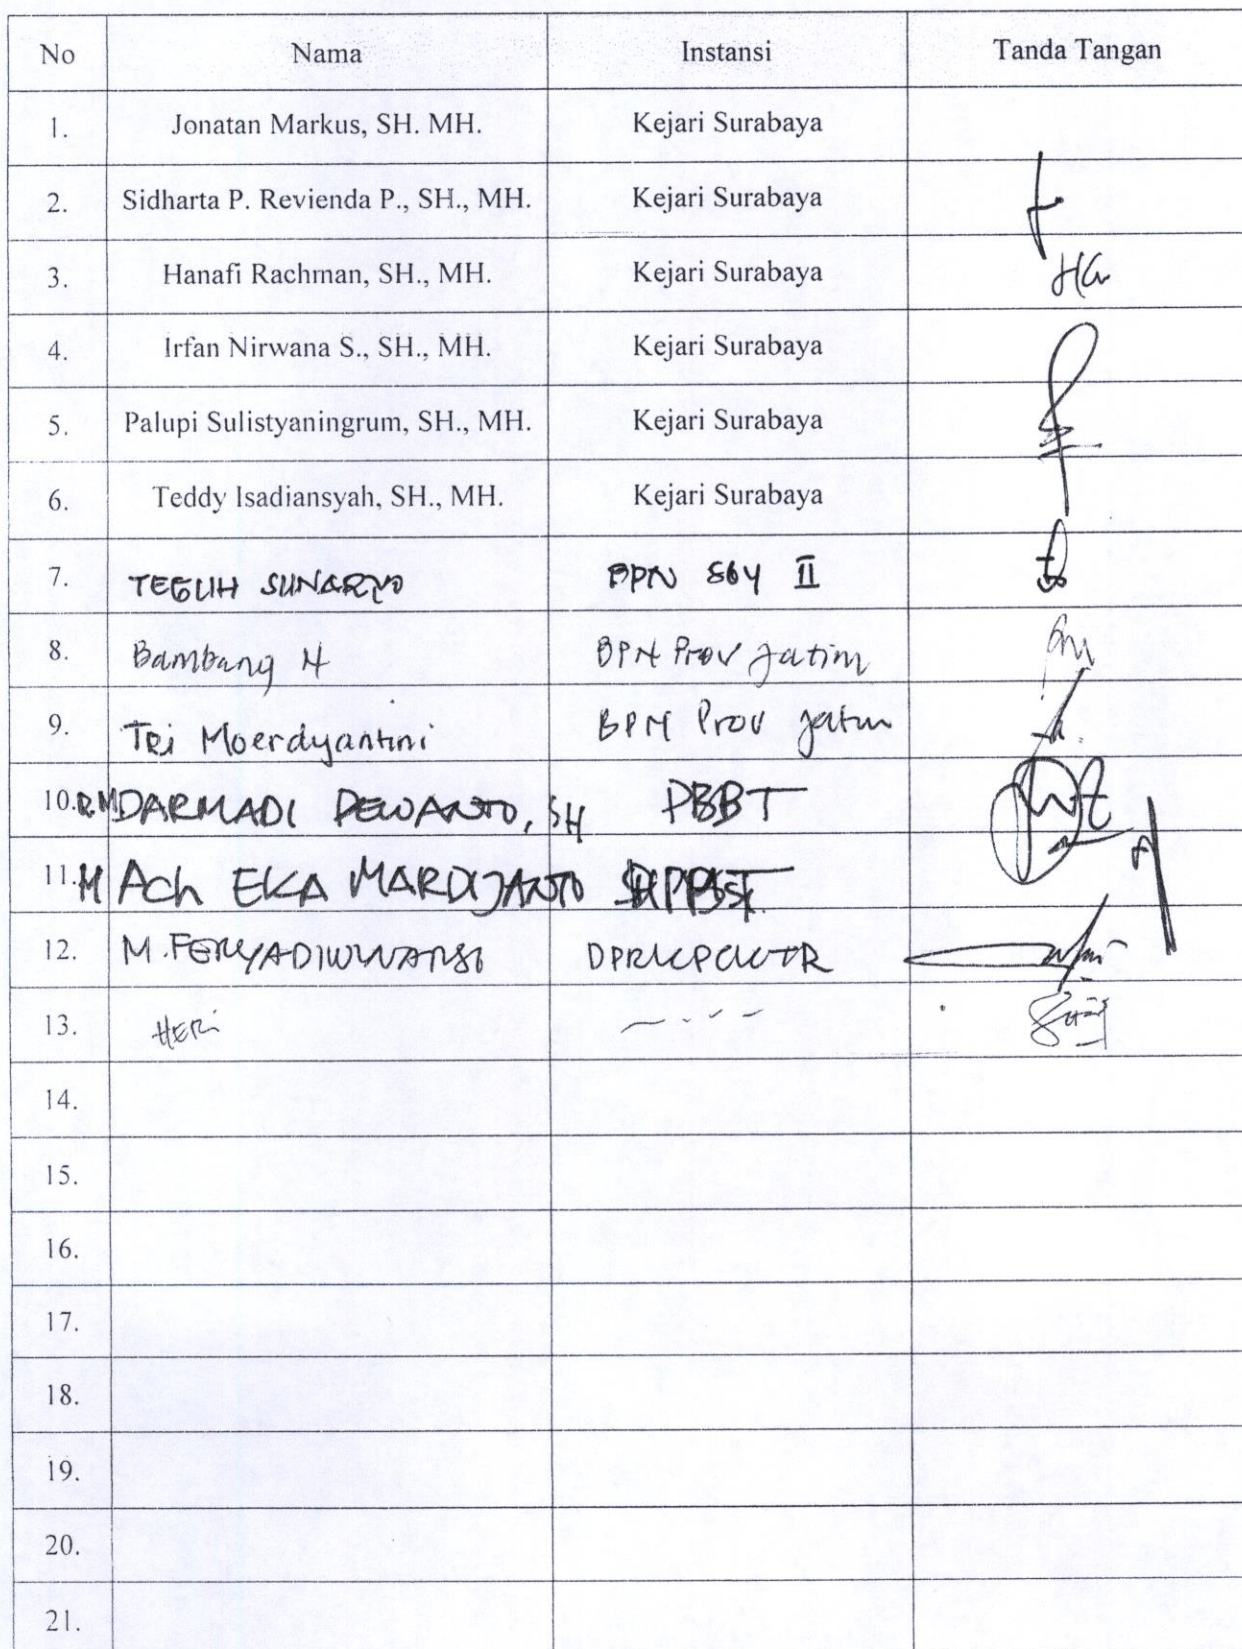 No Nama Instansi Tanda Tangan
1. Jonatan Markus, SH. MH. Kejari Surabaya
2. Sidharta P. Revienda P., SH., MH. Kejari Surabaya
3. Hanafi Rachman, SH., MH. Kejari Surabaya
4. Irfan Nirwana S., SH., MH. Kejari Surabaya
5. Palupi Sulistyaningrum, SH., MH. Kejari Surabaya
6. Teddy Isadiansyah, SH., MH. Kejari Surabaya
7. TEGUH SUNARYO BPN SBY II
8. Bambang H BPN Prov Jatim
9. Tri Moerdyantini BPN Prov Jatim
10. R.M DARMADI DEWANTO, SH PBBT
11. M Ach EKA MARDIJANTO
12. M.
13. HERI
14.
15.
16.
17.
18.
19.
20.
21.